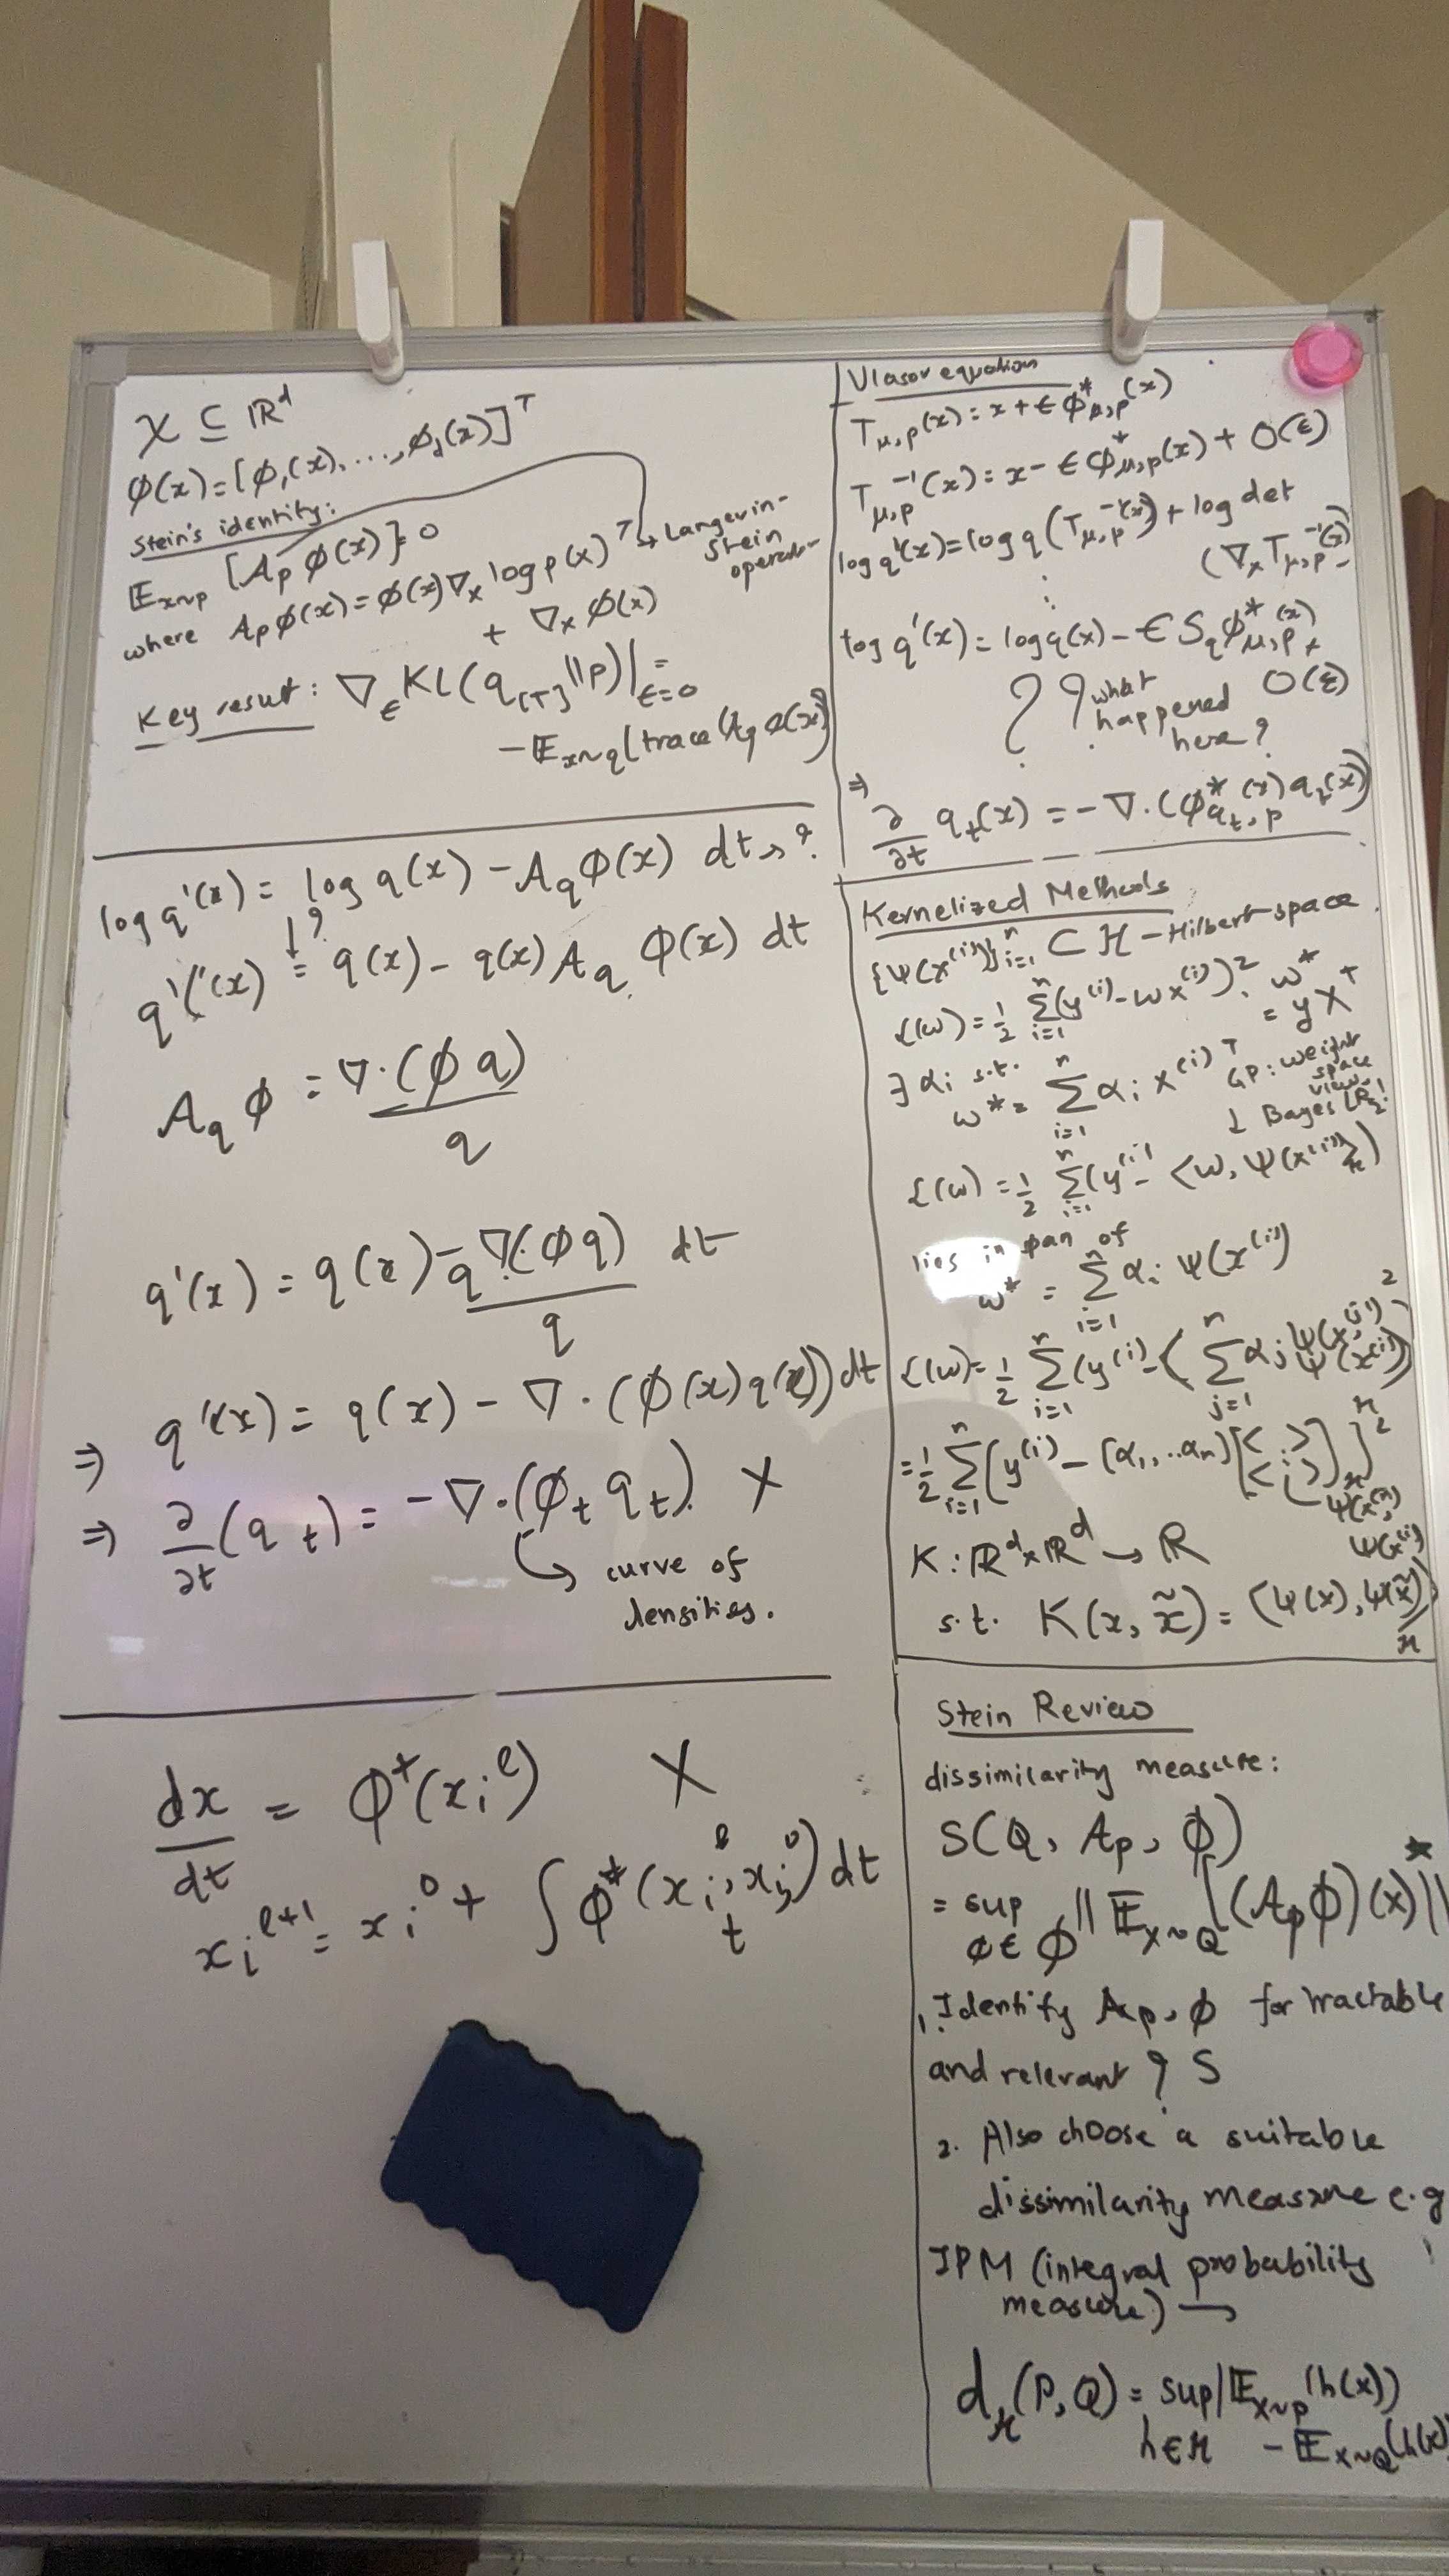 χ ⊆ ℝᵈ
φ(x) = [φ₁(x), ..., φ_d(x)]ᵀ
Stein's identity:
𝔼_{x∼p} [A_p φ(x)] = 0
where A_p φ(x) = φ(x) ∇ₓ log p(x)ᵀ
→ Langevin-
Stein
operator
+ ∇ₓ φ(x)
Key result: ∇_ε KL(q_[T] || p)|_{ε=0} =
- 𝔼_{x∼q} [trace(A_q φ(x))]
log q'(x) = log q(x) - A_q φ(x) dt → ?
↓?
q'(x) = q(x) - q(x) A_q φ(x) dt
A_q φ = ∇·(φ q) / q
q'(x) = q(x) - q ∇·(φ q) / q dt
⇒ q'(x) = q(x) - ∇·(φ(x) q(x)) dt
⇒ ∂/∂t (q_t) = -∇·(φ_t q_t). X
↳ curve of
densities.
dx/dt = φ*(x_i^ℓ) X
x_i^{ℓ+1} = x_i^0 + ∫ φ*(x_i^ℓ, x_j^0) dt
t
Vlasov equation
T_{μ,p}(x) = x + ε φ*_{μ,p}(x)
T_{μ,p}^{-1}(x) = x - ε φ*_{μ,p}(x) + O(ε)
log q'(x) = log q(T_{μ,p}^{-1}(x)) + log det
(∇ₓ T_{μ,p}^{-1}(x))
⋮
log q'(x) = log q(x) - ε S_q φ*_{μ,p}(x) +
O(ε)
? ? what
happened
here?
⇒ ∂/∂t q_t(x) = -∇·(φ*_{q_t,p}(x) q_t(x))
Kernelized Methods
{ψ(x^{(i)})}_{i=1}^n ⊂ ℋ - Hilbert space
ℒ(w) = 1/2 Σ_{i=1}^n (y^{(i)} - w x^{(i)})². w*
= y X⁺
∃ α_i s.t.
w* = Σ_{i=1}^n α_i x^{(i)ᵀ}
GP: weight
space
view
↓ Bayes LR!
ℒ(w) = 1/2 Σ_{i=1}^n (y^{(i)} - <w, ψ(x^{(i)})>_ℋ)
lies in span of
w* = Σ_{i=1}^n α_i ψ(x^{(i)})
ℒ(w) = 1/2 Σ_{i=1}^n (y^{(i)} - <Σ_{j=1}^n α_j ψ(x^{(j)}), ψ(x^{(i)})>_ℋ)²
= 1/2 Σ_{i=1}^n (y^{(i)} - [α₁, ... α_n] [< > < , >]_ℋ)²
ψ(x^{(n)}),
ψ(x^{(i)})
K : ℝᵈ × ℝᵈ → ℝ
s.t. K(x, x̃) = <ψ(x), ψ(x̃)>_ℋ
Stein Review
dissimilarity measure:
S(Q, A_p, Φ)
= sup_{φ∈Φ} || 𝔼_{x∼Q} [(A_p φ)(x)] ||*
1. Identify A_p, φ for tractable
and relevant ? S
2. Also choose a suitable
dissimilarity measure e.g
IPM (integral probability
measure) →
d_ℋ(P, Q) = sup_{h∈ℋ} | 𝔼_{x∼p} (h(x))
- 𝔼_{x∼Q} (h(x))